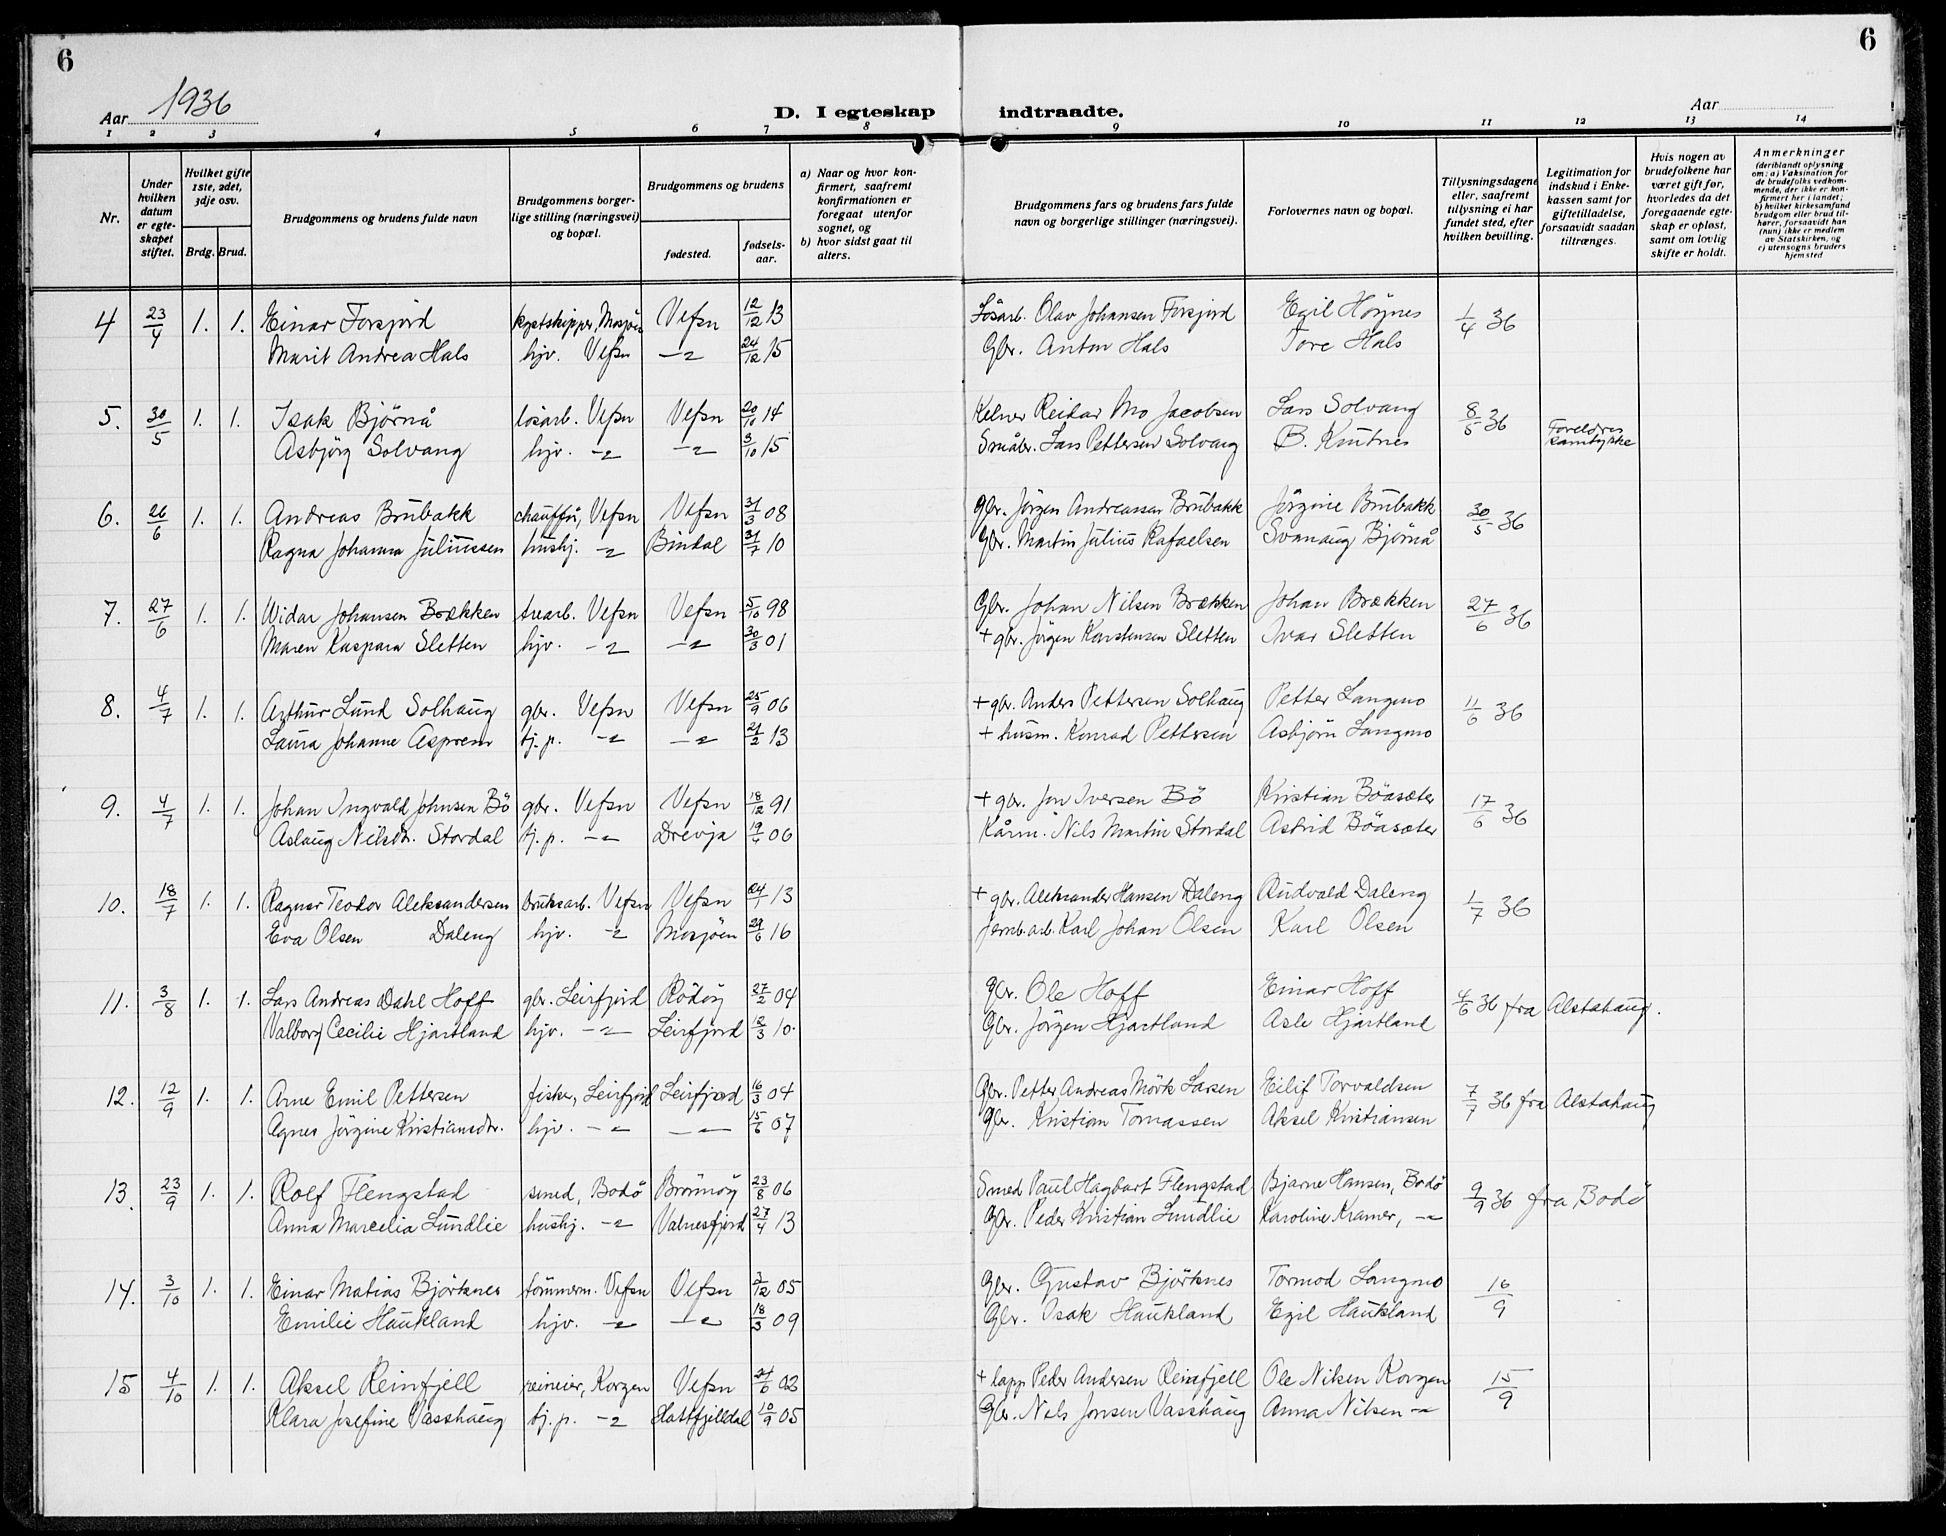 6
6
Aar 1936
D. I egteskap indtraadte.
Aar
1 2 3 4 5 6 7 8 9 10 11 12 13 14
Nr.
Under hvilken datum er egteskapet stiftet.
Hvilket gifte 1ste, 2det, 3dje osv.
Brdg. Brud.
Brudgommens og brudens fulde navn
Brudgommens borgerlige stilling (næringsvei) og bopæl.
Brudgommens og brudens
fødested.
fødselsaar.
a) Naar og hvor konfirmert, saafremt konfirmationen er foregaat utenfor sognet, og
b) hvor sidst gaat til alters.
Brudgommens fars og brudens fars fulde navn og borgerlige stillinger (næringsvei).
Forlovernes navn og bopæl.
Tillysningsdagene eller, saafremt tillysning ei har fundet sted, efter hvilken bevilling.
Legitimation for indskud i Enkekassen samt for giftetilladelse, forsaavidt saadan tiltrænges.
Hvis nogen av brudefolkene har været gift før, hvorledes da det foregaaende egteskap er opløst, samt om lovlig skifte er holdt.
Anmerkninger (deriblandt oplysning om: a) Vaksination for de brudefolks vedkommende, der ikke er konfirmert her i landet; b) hvilket kirkesamfund brudgom eller brud tilhører, forsaavidt han (hun) ikke er medlem av Statskirken, og c) utensogns bruders hjemsted
4 23/4 1. 1. Einar Forsjord kystskipper, Mosjøen Vefsn 12/12 13 Løsarb. Olav Johansen Forsjord Egil Höynes 1/4 36
Marit Andrea Hals hjv. Vefsn —"— 24/12 15 Gbr. Anton Hals Tore Hals
5. 30/5 1. 1. Isak Björnå løsarb. Vefsn Vefsn 20/10 14 Kelner Reidar Mo Jacobsen Lars Solvang 8/5 36 Foreldres samtykke
Asbjörg Solvang hjv. —"— —"— 3/10 15 Småbr. Lars Pettersen Solvang B. Knutnes
6. 26/6 1. 1. Andreas Brubakk chauffør, Vefsn Vefsn 31/3 08 Gbr. Jörgen Andreassen Brubakk Jörgine Brubakk 30/5 36
Ragna Johanna Juliussen hushj. —"— Bindal 31/7 10 Gbr. Martin Julius Rafaelsen Svanaug Björnå
7. 27/6 1. 1. Widar Johansen Brækken trearb. Vefsn Vefsn 5/10 98 Gbr. Johan Nilsen Brækken Johan Brækken 27/6 36
Maren Kaspara Sletten hjv. —"— —"— 30/3 01 + gbr. Jörgen Karstensen Sletten Ivar Sletten
8. 4/7 1. 1. Arthur Lund Solhaug gbr. Vefsn Vefsn 25/9 06 + gbr. Anders Pettersen Solhaug Petter Langmo 11/6 36
Laura Johanne Asprem tj. p. —"— —"— 21/2 13 + husm. Konrad Pettersen Asbjörn Langmo
9. 4/7 1. 1. Johan Ingvald Johnsen Bö gbr. Vefsn Vefsn 18/12 91 + gbr. Jon Iversen Bö Kristian Böasæter 17/6 36
Aslaug Nilsdtr. Stordal tj. p. —"— Drevja 19/6 06 Kårm. Nils Martin Stordal Astrid Böasæter
10. 18/7 1. 1. Ragnar Teodor Aleksandersen Daleng bruksarb. Vefsn Vefsn 24/1 13 + gbr. Aleksander Hansen Daleng Rudvald Daleng 1/7 36
Eva Olsen hjv. —"— Mosjöen 29/6 16 Jernb.arb. Karl Johan Olsen Karl Olsen
11. 3/8 1. 1. Lars Andreas Dahl Hoff gbr. Leirfjord Rödöy 27/2 04 Gbr. Ole Hoff Einar Hoff 4/6 36 fra Alstahaug.
Valborg Cecilie Hjartland hjv. —"— Leirfjord 12/3 10 Gbr. Jörgen Hjartland Asle Hjartland
12. 12/9 1. 1. Arne Emil Pettersen fisker, Leirfjord Leirfjord 16/3 04 Gbr. Petter Andreas Mörk Larsen Eilif Torvaldsen 7/7 36 fra Alstahaug
Agnes Jörgine Kristiansdtr. hjv. —"— —"— 15/6 07 Gbr. Kristian Tomassen Aksel Kristiansen
13. 23/9 1. 1. Rolf Flengstad smed, Bodö Brönnöy 23/8 06 Smed Paul Hagbart Flengstad Bjarne Hansen, Bodö 9/9 36 fra Bodö
Anna Marcelia Lundlie hushj. —"— Valnesfjord 27/4 13 Gbr. Peder Kristian Lundlie Karoline Kramer, —"—
14. 3/10 1. 1. Einar Matias Björknes tömmerm. Vefsn Vefsn 3/12 05 Gbr. Gustav Björknes Tormod Langmo 16/9
Emilie Haukland hjv. —"— —"— 18/3 09 Gbr. Isak Haukland Egil Haukland
15 4/10 1. 1. Aksel Reinfjell reineier, Korgen Vefsn 24/6 03 + lapp Peder Andersen Reinfjell Ole Nilsen Korgen 15/9
Klara Josefine Vasshaug tj. p. —"— Hattfjelldal 10/9 05 Gbr. Nils Jonsen Vasshaug Anna Nilsen —"—